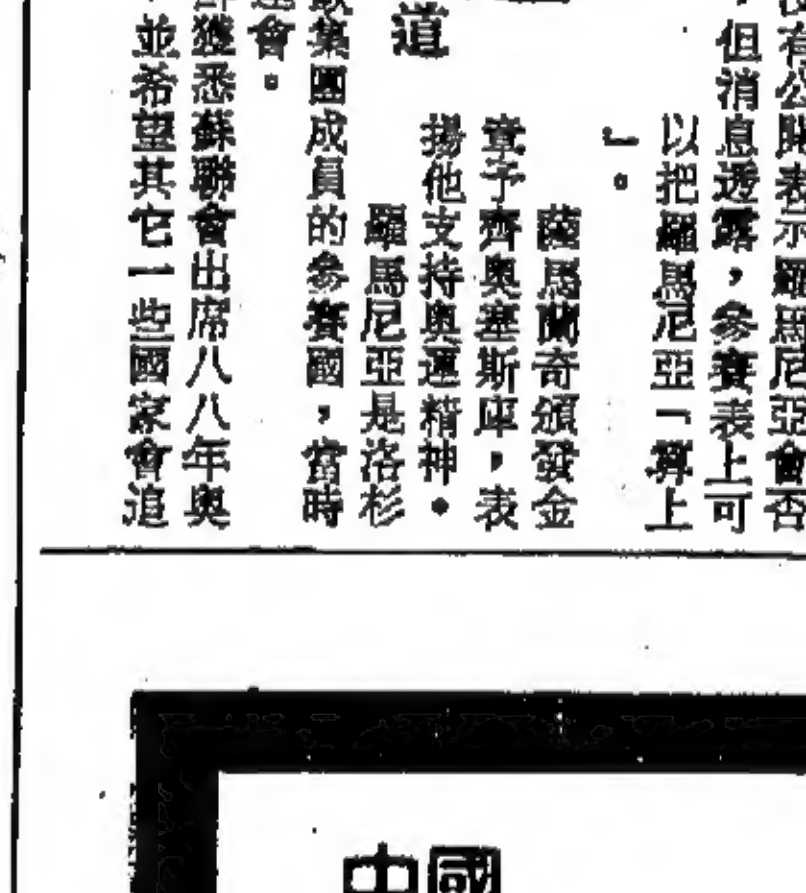 有公開表示羅馬尼亞會否
，但消息透露，參賽表上可
以把羅馬尼亞「算上
」。
薩馬蘭奇頒發金
章予齊奧塞斯庫，表
揚他支持奧運精神。
羅馬尼亞是洛杉
集團成員的參賽國，當時
會。
獲悉蘇聯會出席八八年奧
，並希望其它一些國家會追
道
中國